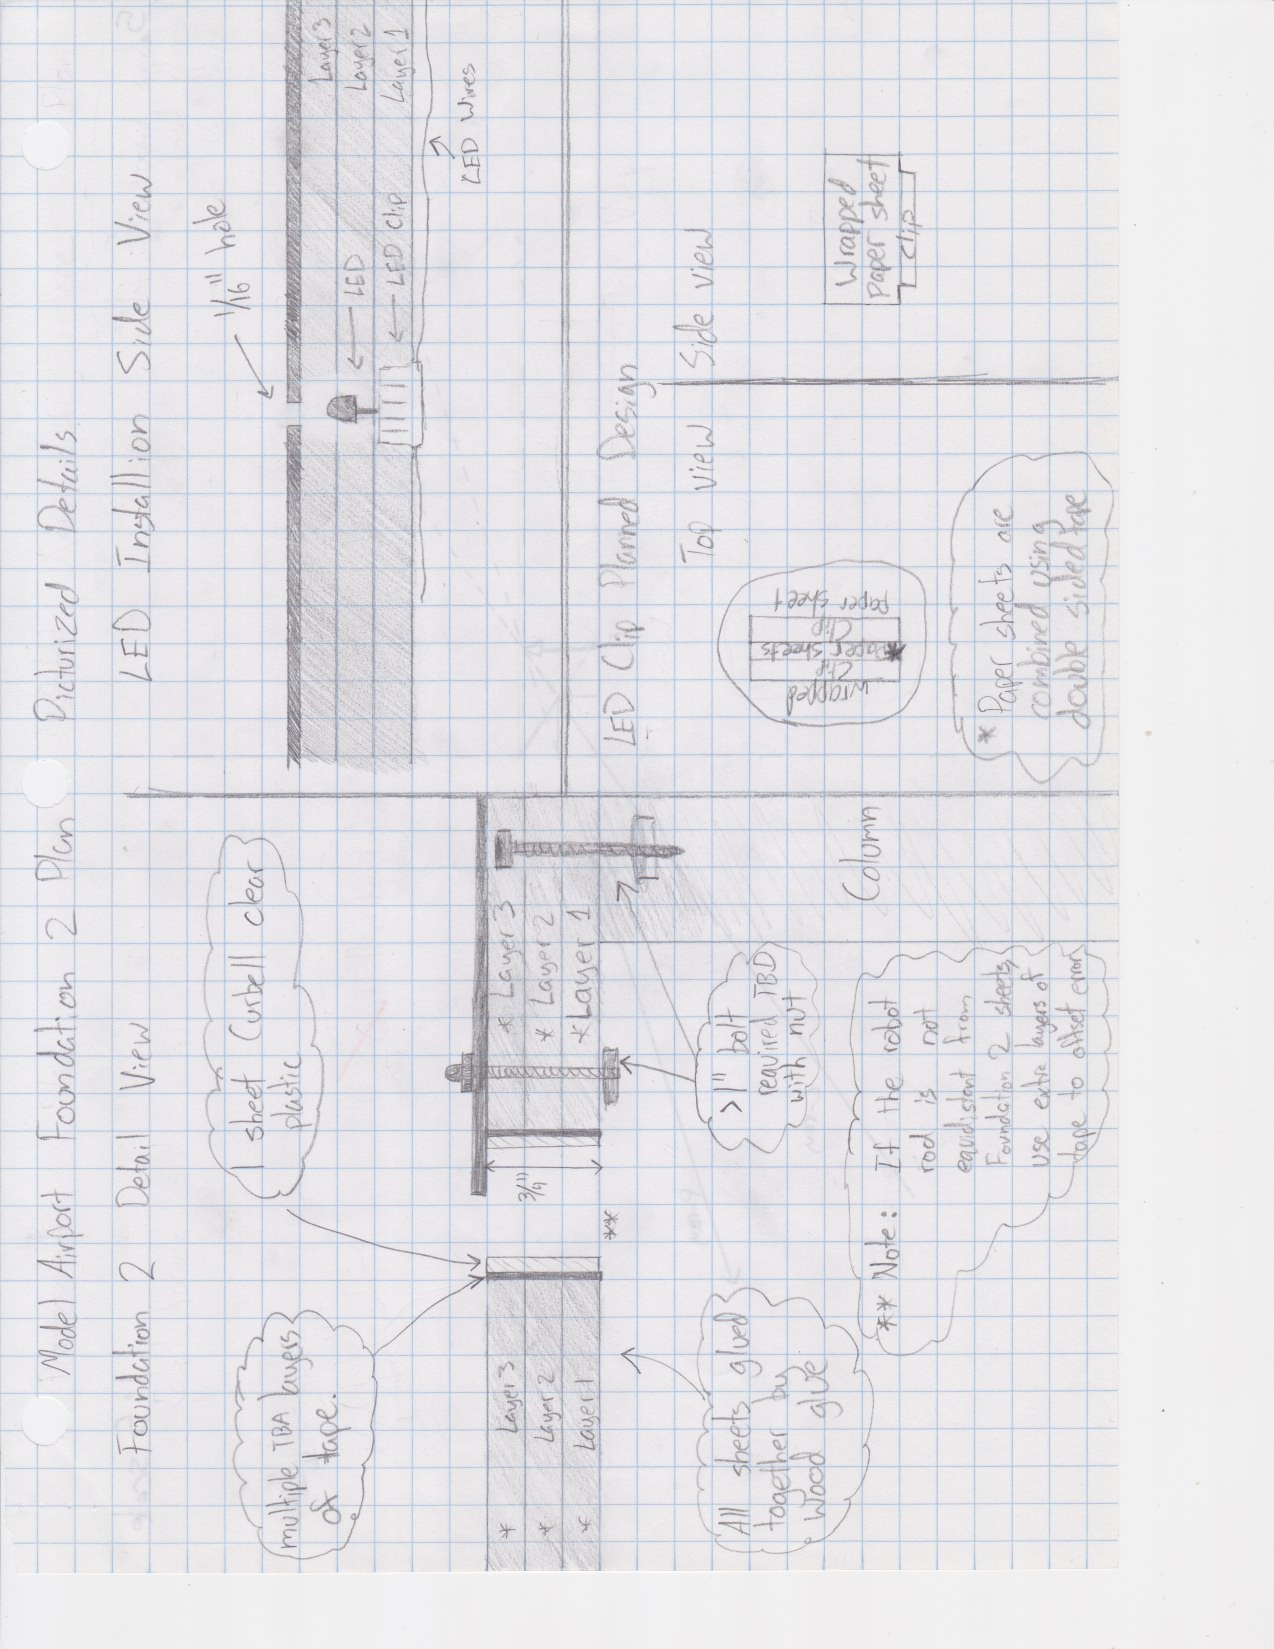 Model Airport Foundation 2 Plan Picturized Details
Foundation 2 Detail View
multiple TBA layers
of tape.
1 sheet Curbell clear
plastic
* Layer 3
* Layer 2
* Layer 1
3/4"
**
* Layer 3
* Layer 2
* Layer 1
All sheets glued
together by
wood glue
>1" bolt
required TBD
with nut
Column
** Note: If the robot
rod is not
equidistant from
Foundation 2 sheets,
use extra layers of
tape to offset error
LED Installion Side View
1/16" hole
Layer 3
Layer 2
Layer 1
LED
LED Clip
LED Wires
LED Clip Planned Design
Top View
wrapped
Clip
*paper sheets
Clip
paper sheet
* Paper sheets are
combined using
double sided tape
Side View
Wrapped
paper sheet
Clip